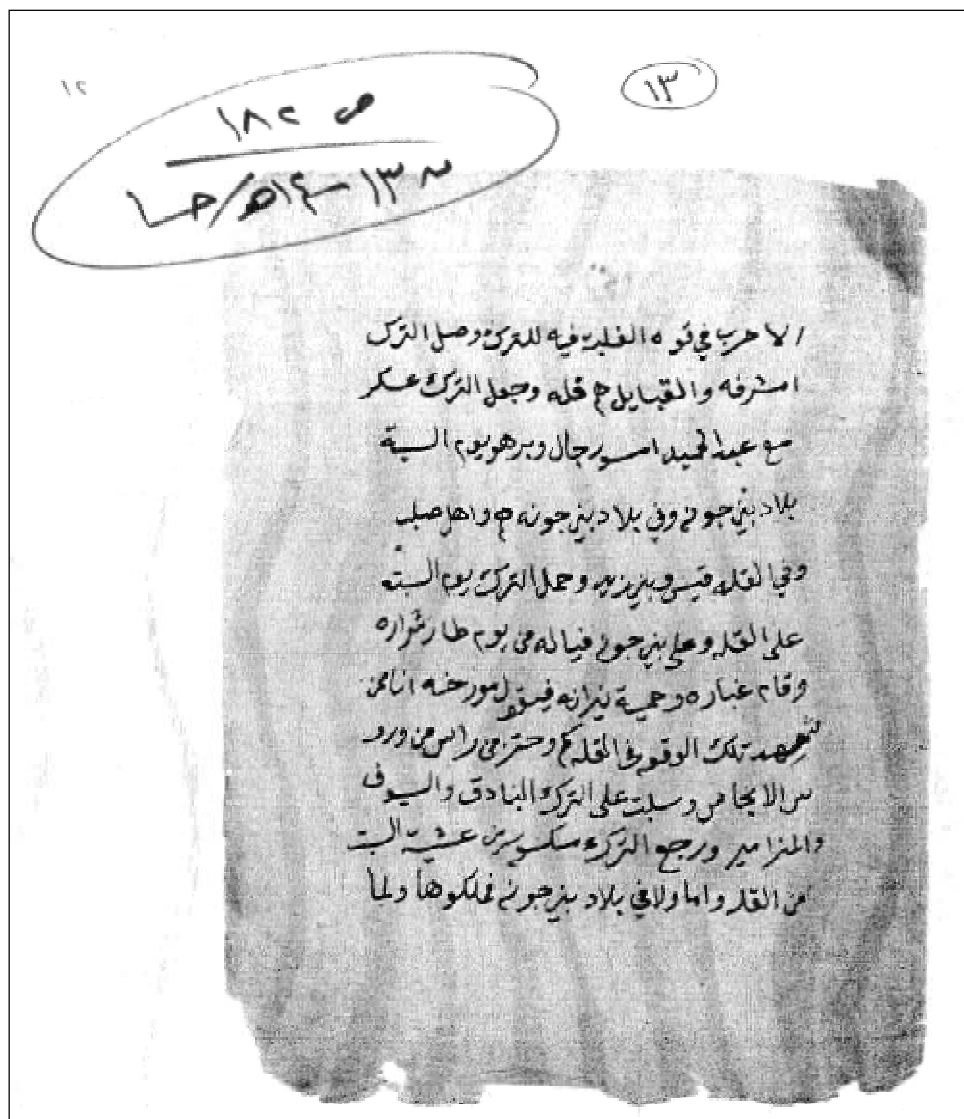 ١٢
١٣
ص ١٨٢
س ١٣–١٤
الا حرب في قوه الغلبة فيه للترك وصل الترك
امشرفه والقبايل ج قله وجعل الترك عسكر
مع عبد الحميد امير رجال وبرهو يوم السبة
بلاد بني جونه وفي بلاد بني جونه ج واهل صلب
وفي القله قيس وبني زيد وحمل الترك يوم السبة
على القله وعلى بني جونه فياله من يوم طار شراره
وقام غباره وحمية نيرانه فيقول مورخه انا ممن
شهد تلك الوقعه في القله كم وحتز من راس من ورو
س الا وسلبت على الترك البنادق والسيوف
والمزامير ورجع الترك مكسورين عشية السبت
من القله واما ولا في بلاد بني جونه فملكوها ولما